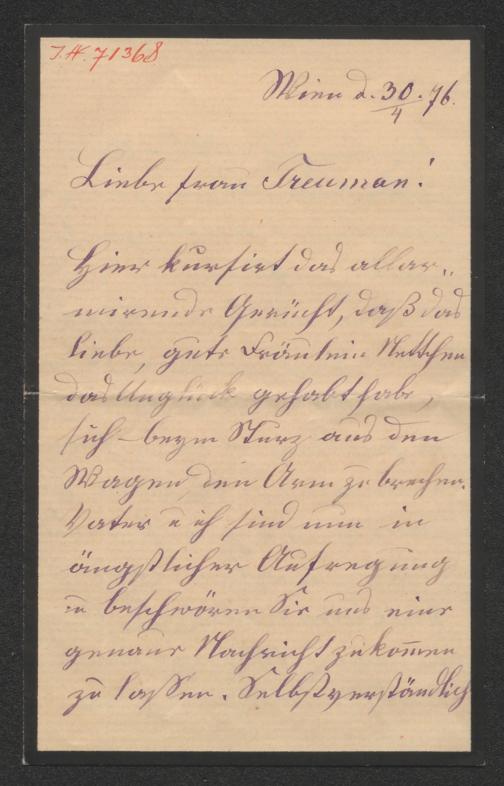 I.N. 71368
Wien d. 30/4. 76.
Liebe Frau Treuman!
Hier kursirt das allar-
mirende Gerücht, daß das
liebe, gute Fräulein Nettchen
das Unglück gehabt habe,
sich beym Sturz aus den
Wagen den Arm zu brechen.
Vater u ich sind nun in
ängstlicher Aufregung
u beschwören Sie uns eine
genaue Nachricht zukom̅en
zu lassen. Selbstverständlich